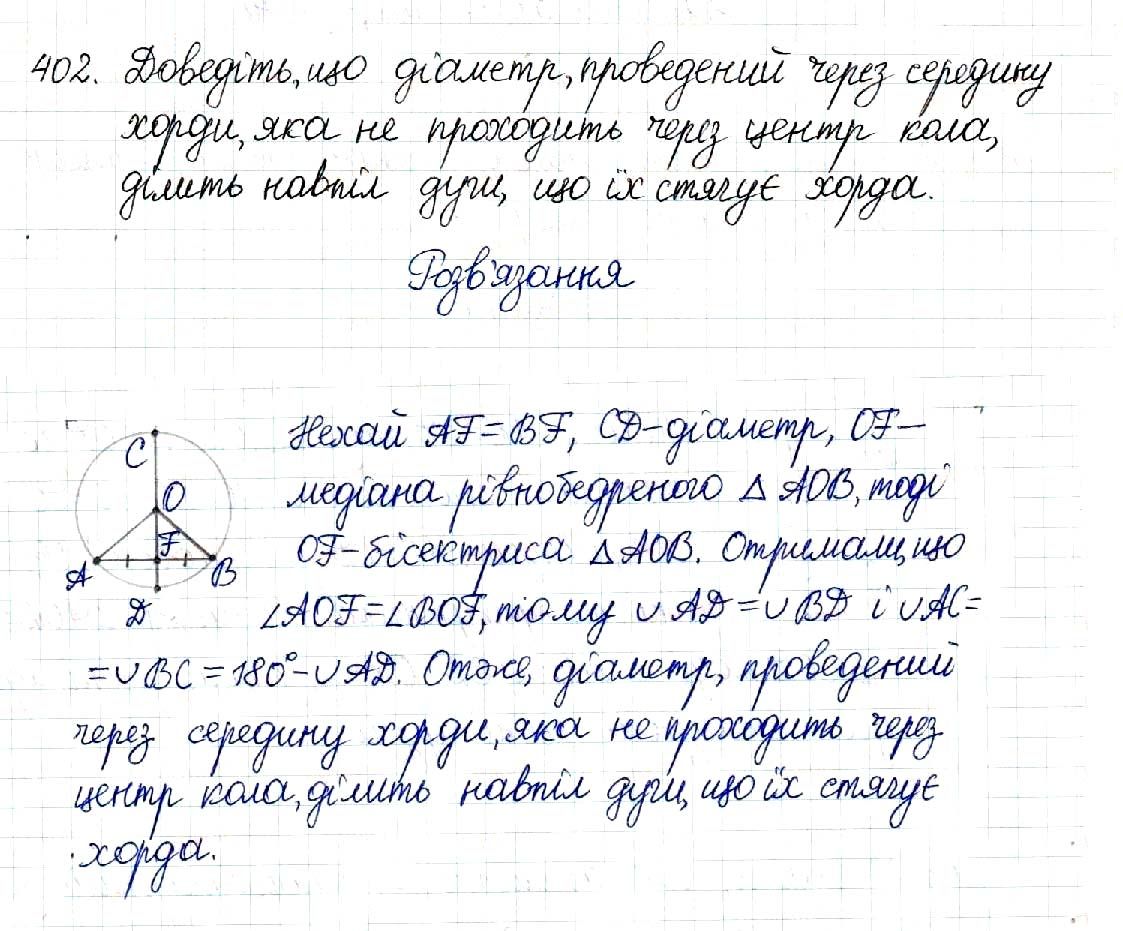 402. Доведіть, що діаметр, проведений через середину
хорди, яка не проходить через центр кола,
ділить навпіл дуги, що їх стягує хорда.
Розв'язання
Нехай AF=BF, CD-діаметр, OF-
медіана рівнобедреного △ AOB, тоді
OF-бісектриса △AOB. Отримали, що
∠AOF=∠BOF, тому ∪ AD=∪ BD і ∪AC=
=∪BC=180°-∪AD. Отже, діаметр, проведений
через середину хорди, яка не проходить через
центр кола, ділить навпіл дуги, що їх стягує
хорда.
C
O
F
A
B
D